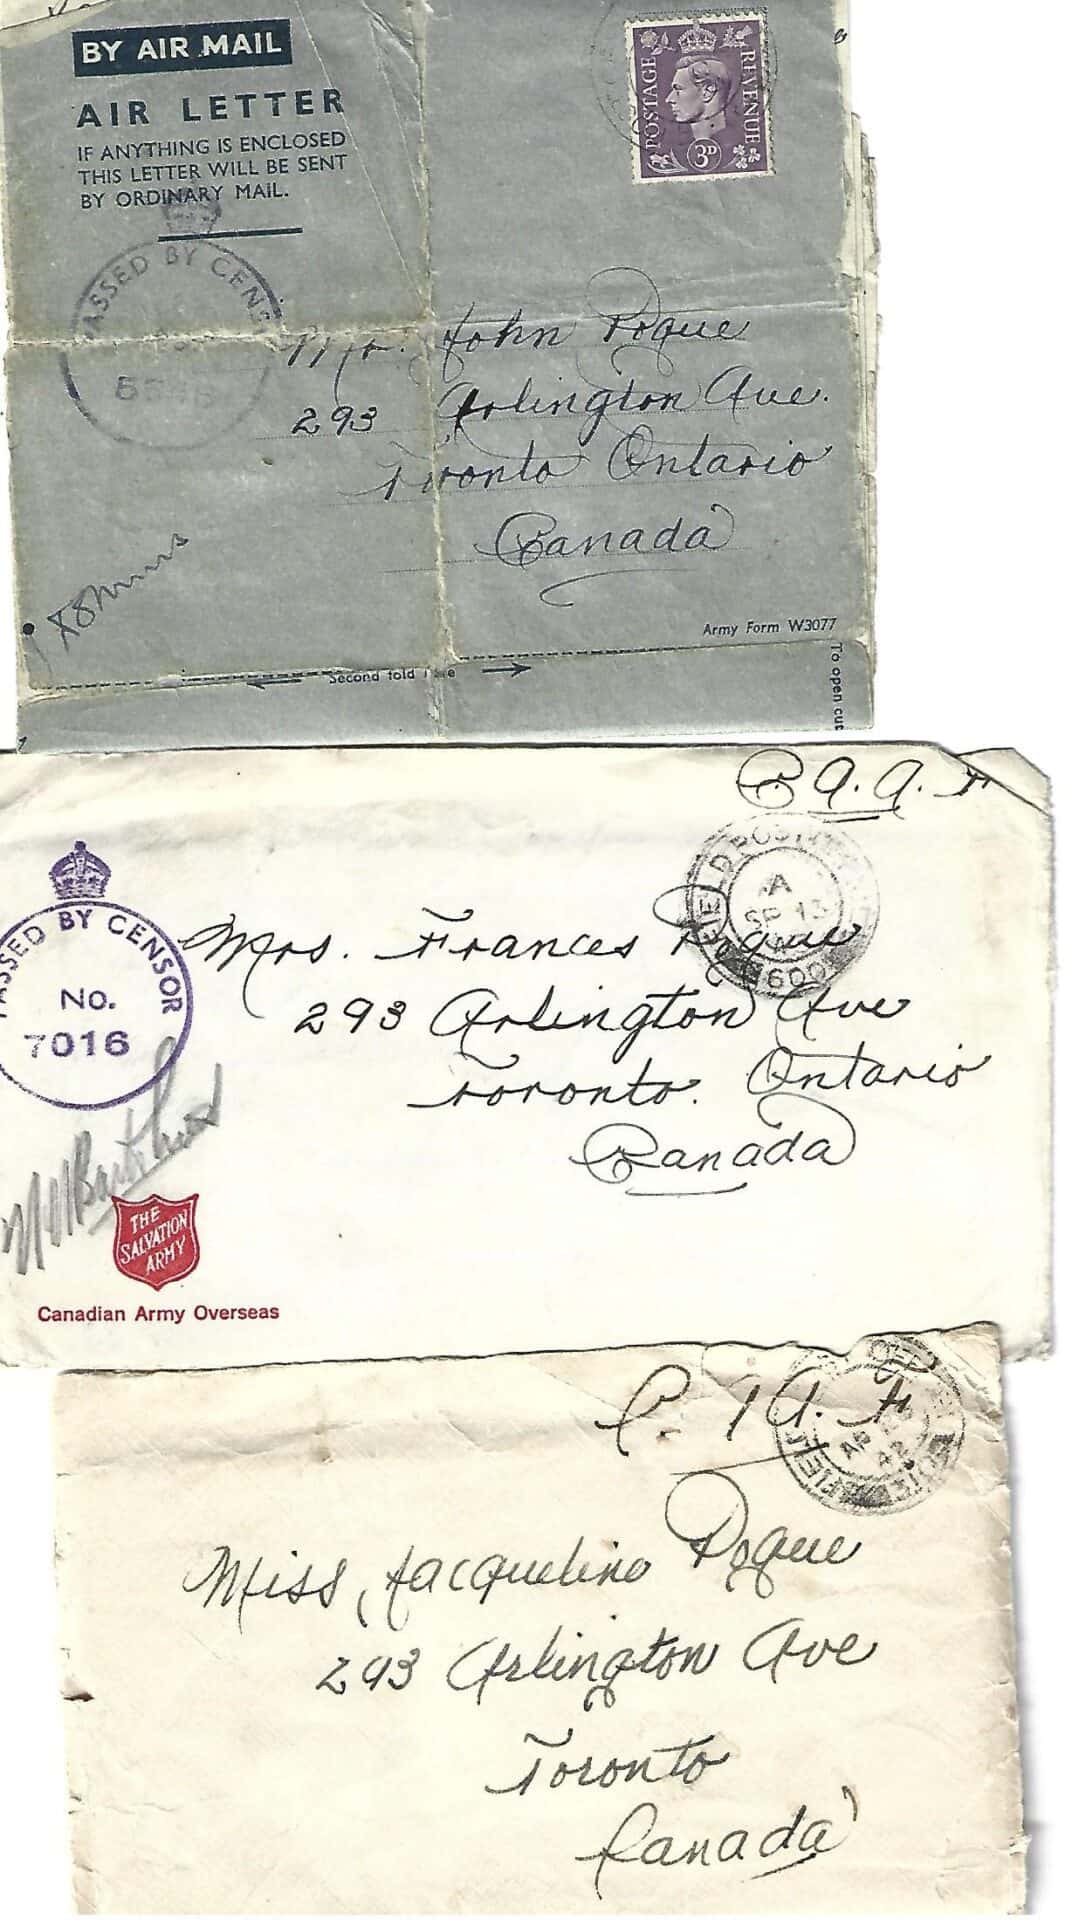 BY AIR MAIL
AIR LETTER
IF ANYTHING IS ENCLOSED
THIS LETTER WILL BE SENT
BY ORDINARY MAIL.
POSTAGE REVENUE
3D
PASSED BY CENS
Mr. John Pogue
293 Arlington Ave.
Toronto Ontario
Canada
Army Form W3077
Second fold here
To open cut
C.A.A.F
FIELD POST OFFICE
A
SP 13
600
PASSED BY CENSOR
No.
7016
Mrs. Frances Pogue
293 Arlington Ave
Toronto. Ontario
Canada
THE
SALVATION
ARMY
Canadian Army Overseas
C. A. F
FIELD
AP
42
Miss, Jacqueline Pogue
293 Arlington Ave
Toronto
Canada